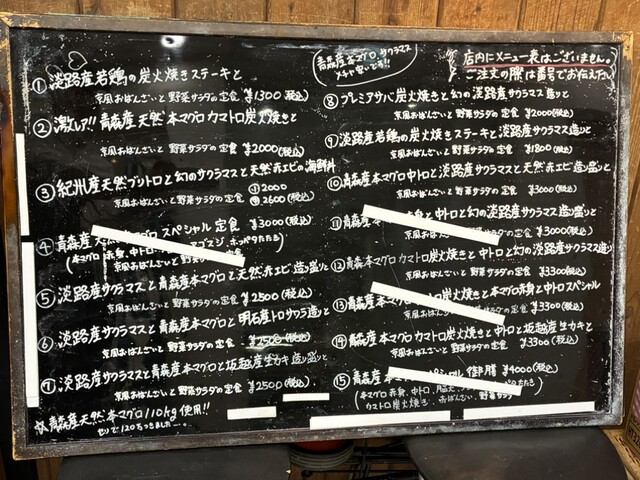 青森産本マグロ サクラマス
メチャ安いです!!
店内にメニュー表はございません。
ご注文の際は番号でお伝え下さい
① 淡路産若鶏の炭火焼きステーキと
京風おばんざいと野菜サラダの定食 ¥1300(税込)
② 激レア!! 青森産天然本マグロカマトロ炭火焼きと
京風おばんざいと野菜サラダの定食 ¥2000(税込)
③ 紀州産天然ブリトロと幻のサクラマスと天然赤エビの海鮮丼
京風おばんざいと野菜サラダの定食
2000
2600(税込)
④ 青森産 スペシャル定食 ¥3000(税込)
(本マグロ赤身、中トロ
京風おばんざいと
⑤ 淡路産サクラマスと青森産本マグロと天然赤エビ造り盛りと
京風おばんざいと野菜サラダの定食 ¥2500(税込)
⑥ 淡路産サクラマスと青森産本マグロと明石産トロサワラ造りと
京風おばんざいと野菜サラダの定食 ¥2500(税込)
⑦ 淡路産サクラマスと青森産本マグロと坂越産生カキ造り盛りと
京風おばんざいと野菜サラダの定食 ¥2500(税込)
☆青森産天然本マグロ110kg使用!!
セリで120
⑧ プレミアサバ炭火焼きと幻の淡路産サクラマス造りと
京風おばんざいと野菜サラダの定食 ¥2000(税込)
⑨ 淡路産若鶏の炭火焼きステーキと淡路産サクラマス造りと
京風おばんざいと野菜サラダの定食 ¥1800(税込)
⑩ 青森産本マグロ中トロと淡路産サクラマスと天然赤エビ造り盛りと
京風おばんざいと野菜サラダの定食 ¥3000(税込)
⑪ 青森産本 身と中トロと幻の淡路産サクラマス造り盛りと
京風おばんざい の定食 ¥3000(税込)
⑫ 青森産本マグロカマトロ炭火焼きと中トロと幻の淡路産サクラマス造り
京風おばんざいと野菜サラダの定食 ¥3300(税込)
⑬ 青森産本マグロ 炭火焼きと本マグロ赤身と中トロスペシャル
京風おばんざいと の定食 ¥3300(税込)
⑭ 青森産本マグロカマトロ炭火焼きと中トロと坂越産生カキと
京風おばんざいと野菜サラダの定食 ¥3300(税込)
⑮ 青森産本 御膳 ¥4000(税込)
(本マグロ赤身、中トロ、
カマトロ炭火焼き、おばんざい、野菜サラダ